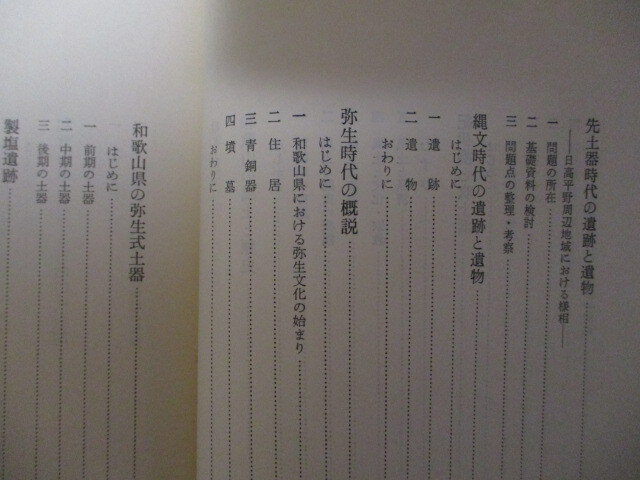 先土器時代の遺跡と遺物
――日高平野周辺地域における様相――
一 問題の所在
二 基礎資料の検討
三 問題点の整理・考察
縄文時代の遺跡と遺物
はじめに
一 遺跡
二 遺物
おわりに
弥生時代の概説
はじめに
一 和歌山県における弥生文化の始まり
二 住居
三 青銅器
四 墳墓
おわりに
和歌山県の弥生式土器
はじめに
一 前期の土器
二 中期の土器
三 後期の土器
製塩遺跡